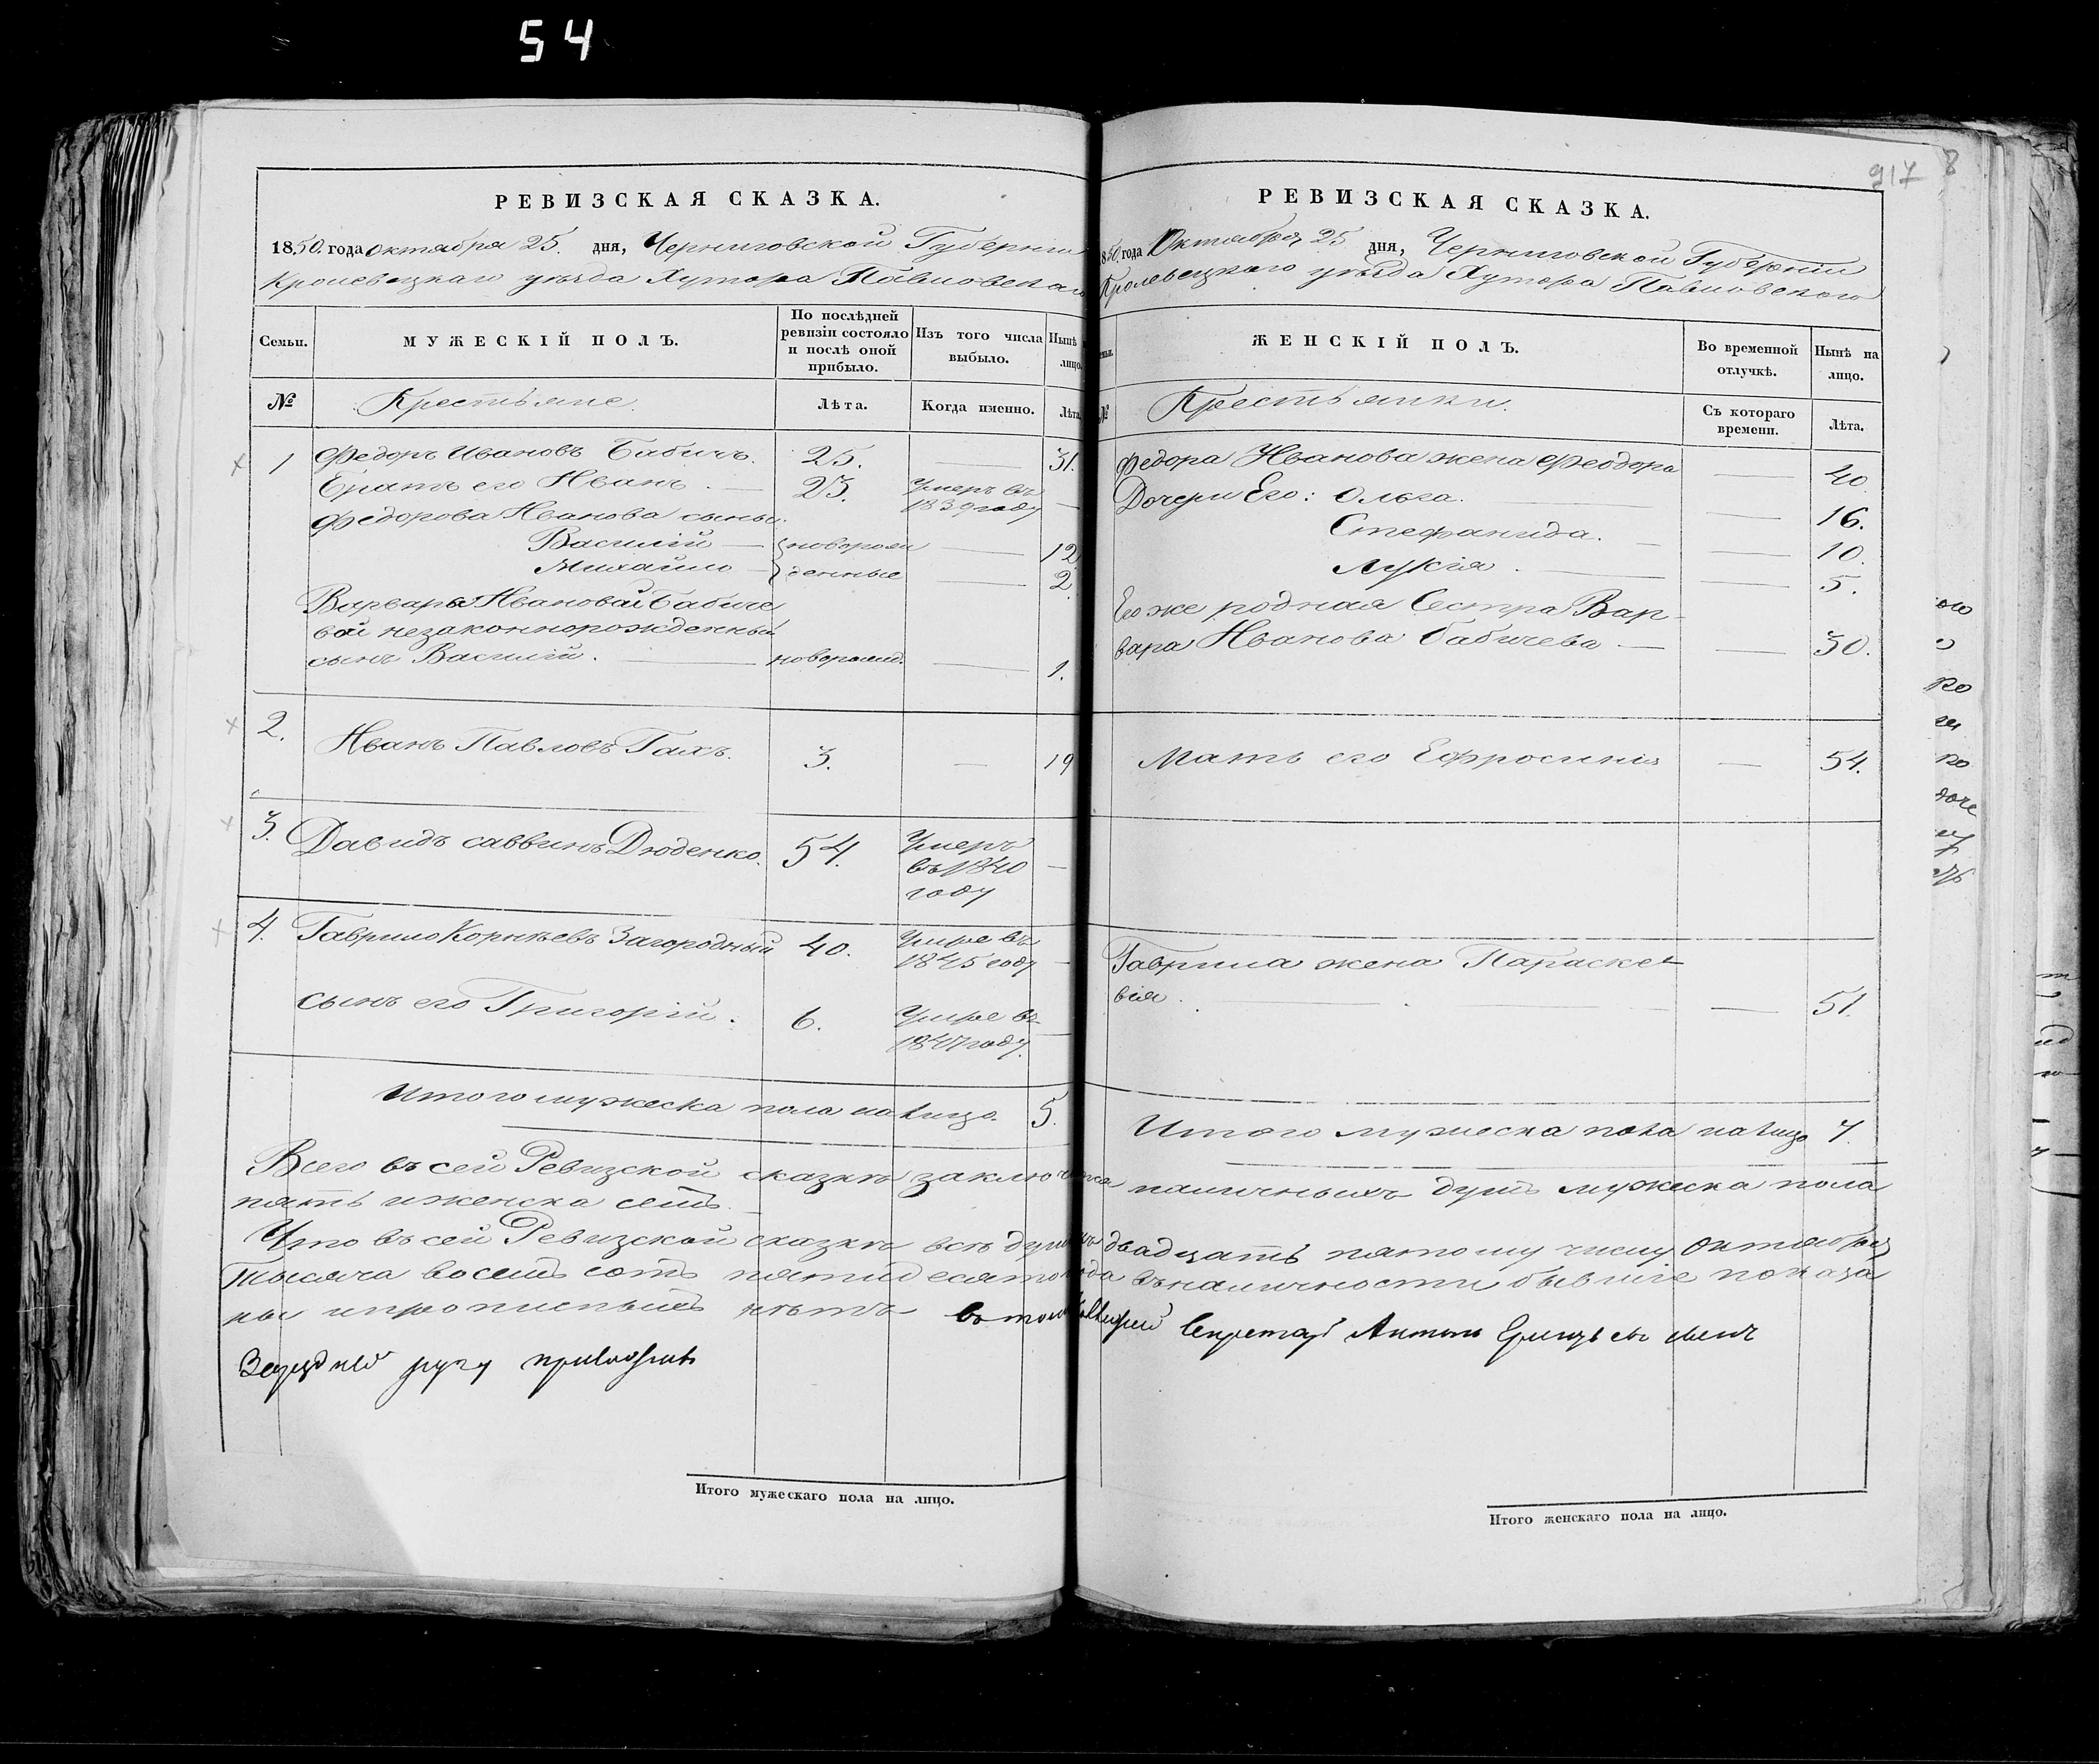 54
РЕВИЗСКАЯ СКАЗКА.
1850. года Октября 25. дня, Черниговской Губерніи
Кролевецкаго уѣзда Хутора Павловскаго
Семьи.
МУЖЕСКІЙ ПОЛЪ.
По послѣдней ревизіи состояло и послѣ оной прибыло.
Изъ того числа выбыло.
Нынѣ на лицо.
№
Крестьяне.
Лѣта.
Когда именно.
Лѣта.
1 Федоръ Ивановъ Бабичъ. 25. — 31.
Братъ его Иванъ. — 23. Умеръ въ 1839 году —
Федорова Иванова сыны:
Василій — новорож — 12
Михайло — денные — 2
Варвары Ивановой Бабиче
вой незаконнорожденный
сынъ Василій. — новорожд. — 1.
2. Иванъ Павловъ Гахъ. 3. — 19
3. Давидъ саввинъ Дюденко. 54. Умеръ въ 1840 году —
4. Гаврило Корнѣевъ Загородный 40. Умре въ 1845 году —
сынъ его Григорій. 6. Умре въ 1847 году. —
Итого мужеска пола на лицо. 5.
917 8
РЕВИЗСКАЯ СКАЗКА.
1850 года Октября 25 дня, Черниговской Губерніи
Кролевецкаго уѣзда Хутора Павловскаго
ЖЕНСКІЙ ПОЛЪ.
Во временной отлучкѣ.
Нынѣ на лицо.
№
Крестьянки.
Съ котораго времени.
Лѣта.
Федора Иванова жена Феодора — 40
Дочери Его: Ольга. — 16.
Стефанида. — 10.
Лукія. — 5.
Его же родная Сестра Вар-
вара Иванова Бабичева — 30.
Мать его Ефросинія — 54.
Гаврила жена Параске-
вія. — 51.
Итого мужеска пола на лицо 7.
Всего въ сей Ревизской сказкѣ заключа наличныхъ душъ мужеска пола
пять и женска семь.
Что въ сей Ревизской сказкѣ всѣ души двадцать пятому числу Октября
тысяча восемь сотъ пятидесятого года въ наличности бывшіе показа
ны и прописныхъ нѣтъ въ томъ Секретарь Антонъ
руку приложилъ
Итого мужескаго пола на лицо.
Итого женскаго пола на лицо.